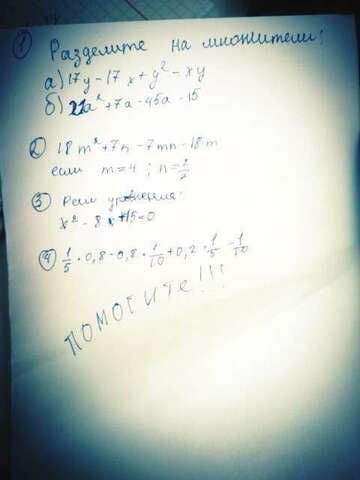 ① Разделите на множители:
а) 17y - 17x + y² - xy
б) 21a² + 7a - 45a - 15
② 18m² + 7n - 7mn - 18m
если m = 4 ; n = 2/7
③ Реши уравнение:
x² - 8x + 15 = 0
④ 1/5 · 0,8 - 0,8 · 1/10 + 0,2 · 1/5 - 1/10
ПОМОГИТЕ!!!